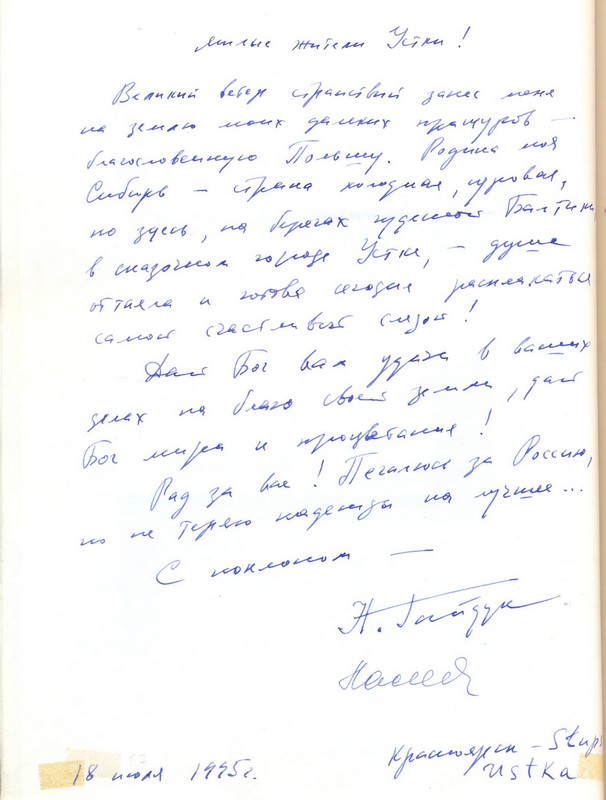 милые жители Устки!
Великий ветер странствий занес меня
на землю моих далеких пращуров —
благословенную Польшу. Родина моя
Сибирь — страна холодная, суровая,
но здесь, на берегах чудесной Балтики,
в сказочном городе Устке, — душа
оттаяла и готова сегодня расплакаться
самой счастливой слезой!
Дай Бог вам удачи в ваших
делах на благо своей земли, дай
Бог мира и процветания!
Рад за вас! Печалюсь за Россию,
но не теряю надежды на лучшее...
С поклоном —
Н. Гайдук
18 июля 1995г.
Красноярск — Słup
Ustka